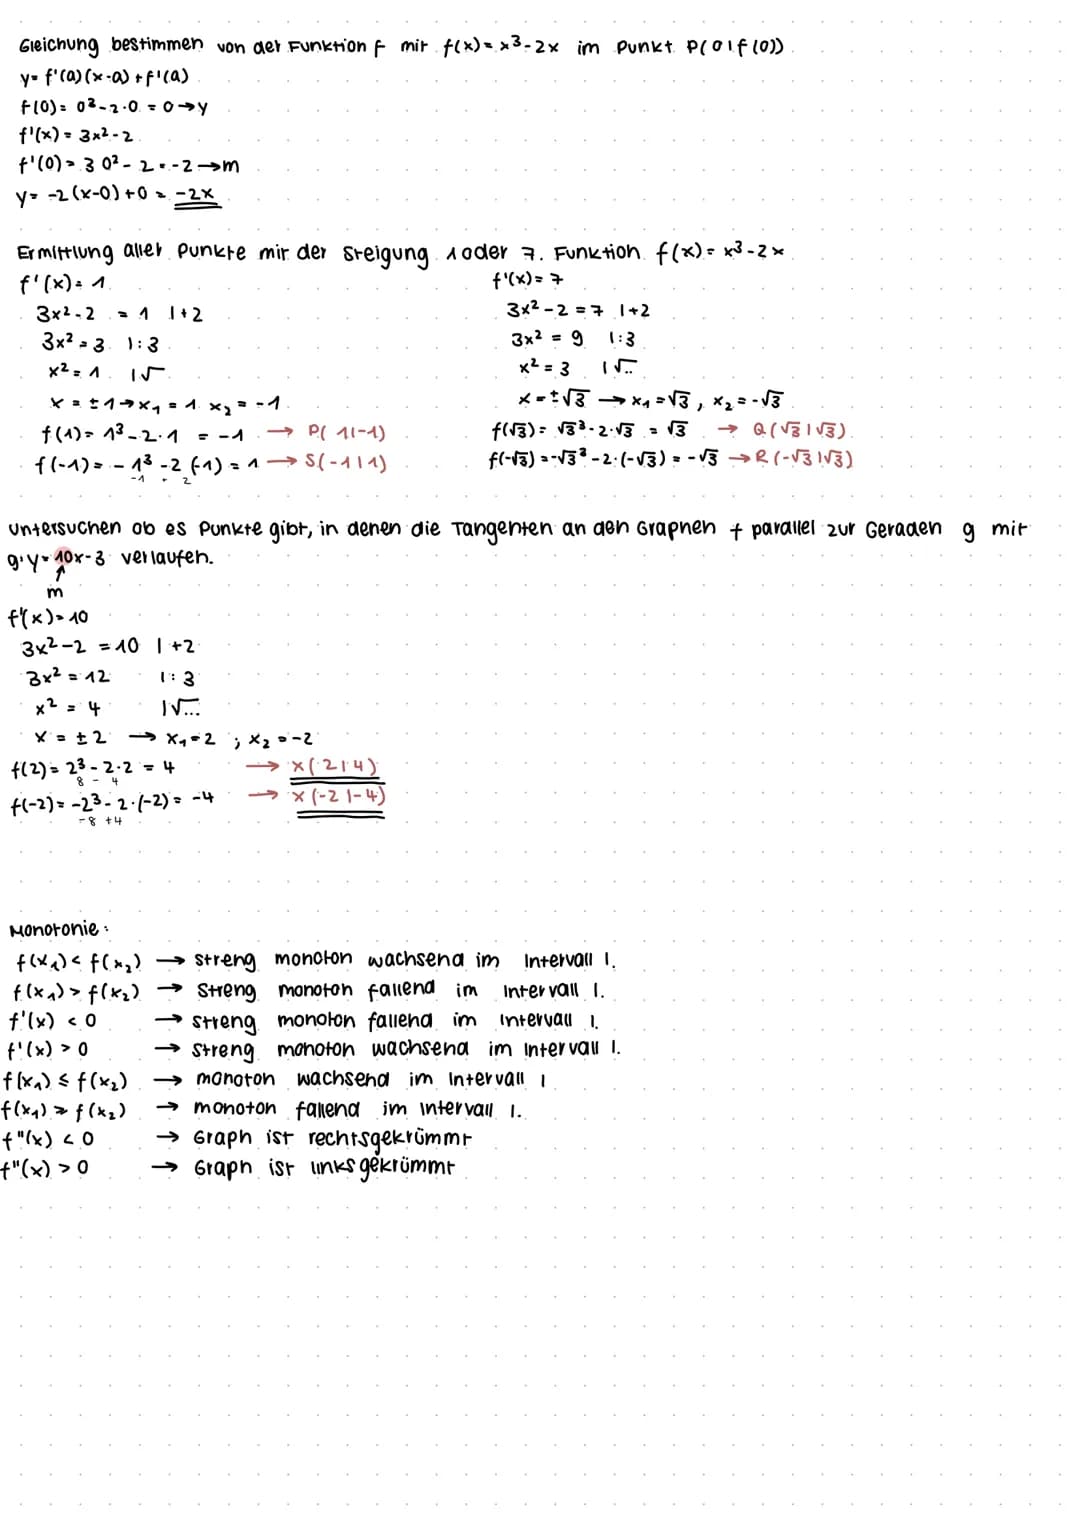 Gleichung bestimmen von der Funktion f mit f(x) = x³-2x im Punkt P(0|f(0))
y= f'(a)(x-a)+f'(a)
f(0)= 0³-2·0 = 0→y
f'(x) = 3x²-2
f'(0)= 3 0² - 2 = -2→m
y= -2(x-0)+0 = -2x
Ermittlung aller Punkte mit der Steigung 1 oder 7. Funktion f(x) = x³-2x
f'(x)= 1
3x²-2 = 1 |+2
3x² = 3 |:3
x² = 1 |√
x = ±1→x₁ = 1 x₂ = -1
f(1)= 1³-2·1 = -1 → P( 1|-1)
f(-1)= -1³ -2 (-1) = 1 → S(-1|1)
-1 + 2
f'(x)= 7
3x²-2 = 7 |+2
3x² = 9 |:3
x² = 3 |√..
x = ±√3 → x₁ = √3 , x₂ = -√3
f(√3)= √3³-2·√3 = √3 → Q(√3|√3)
f(-√3) = -√3³ -2·(-√3) = -√3 → R(-√3|√3)
Untersuchen ob es Punkte gibt, in denen die Tangenten an den Graphen f parallel zur Geraden g mit
g:y= 10x-3 verlaufen.
↑
m
f'(x)= 10
3x²-2 = 10 | +2
3x² = 12 |:3
x² = 4 |√...
x = ±2 → x₁=2 ; x₂ = -2
f(2)= 2³-2·2 = 4 → x(2|4)
8 - 4
f(-2)= -2³-2·(-2) = -4 → x(-2|-4)
-8 +4
Monotonie:
f(x₁) < f(x₂) → streng monoton wachsend im Intervall I.
f(x₁) > f(x₂) → streng monoton fallend im Intervall I.
f'(x) < 0 → streng monoton fallend im Intervall I.
f'(x) > 0 → streng monoton wachsend im Intervall I.
f(x₁) ≤ f(x₂) → monoton wachsend im Intervall I
f(x₁) ≥ f(x₂) → monoton fallend im Intervall I.
f"(x) < 0 → Graph ist rechtsgekrümmt
f"(x) > 0 → Graph ist linksgekrümmt